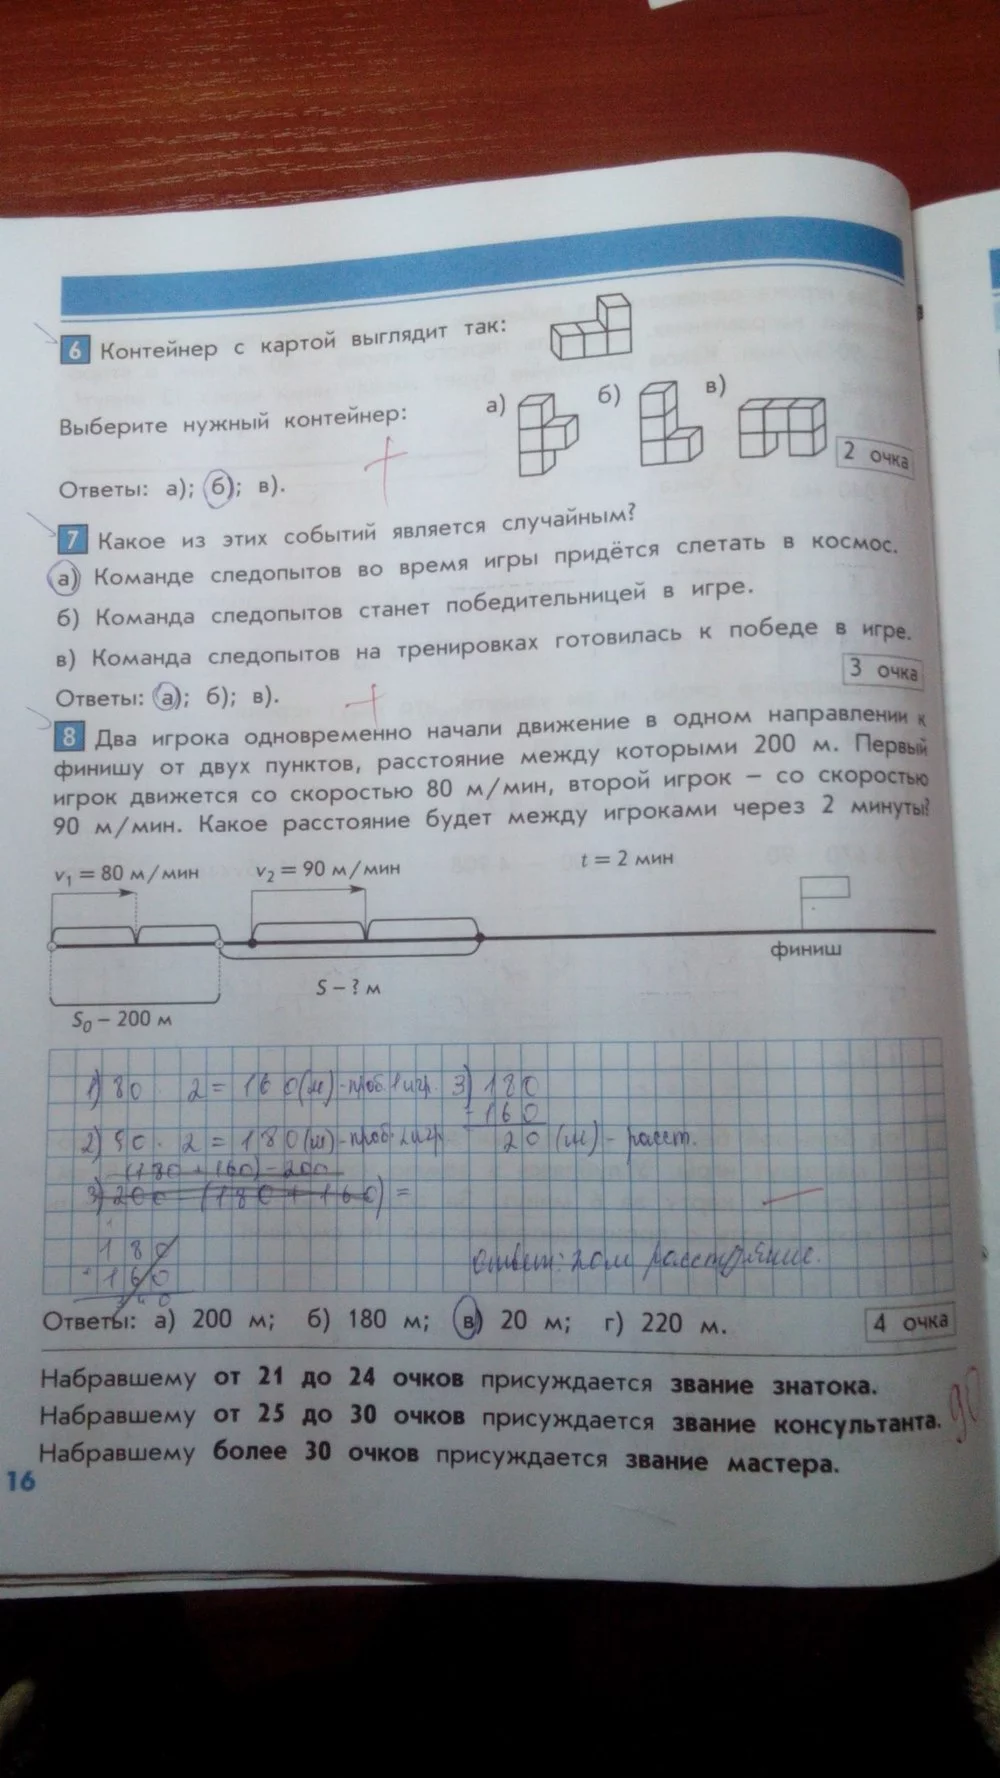 6 Контейнер с картой выглядит так:
Выберите нужный контейнер:
а)
б)
в)
2 очка
Ответы: а); б); в).
7 Какое из этих событий является случайным?
а) Команде следопытов во время игры придётся слетать в космос.
б) Команда следопытов станет победительницей в игре.
в) Команда следопытов на тренировках готовилась к победе в игре.
3 очка
Ответы: а); б); в).
8 Два игрока одновременно начали движение в одном направлении к
финишу от двух пунктов, расстояние между которыми 200 м. Первый
игрок движется со скоростью 80 м/мин, второй игрок – со скоростью
90 м/мин. Какое расстояние будет между игроками через 2 минуты?
v₁ = 80 м/мин
v₂ = 90 м/мин
t = 2 мин
финиш
S – ? м
S₀ – 200 м
1) 80 · 2 = 160(м)-проб. 1 игр.
3) 180
- 160
20 (м) - расст.
2) 90 · 2 = 180(м)-проб. 2 игр.
(180 + 160) - 200
3) 200 - (180 + 160) =
180
+ 160
340
ответ: 20м расстояние.
Ответы: а) 200 м; б) 180 м; в) 20 м; г) 220 м.
4 очка
Набравшему от 21 до 24 очков присуждается звание знатока.
Набравшему от 25 до 30 очков присуждается звание консультанта.
Набравшему более 30 очков присуждается звание мастера.
16